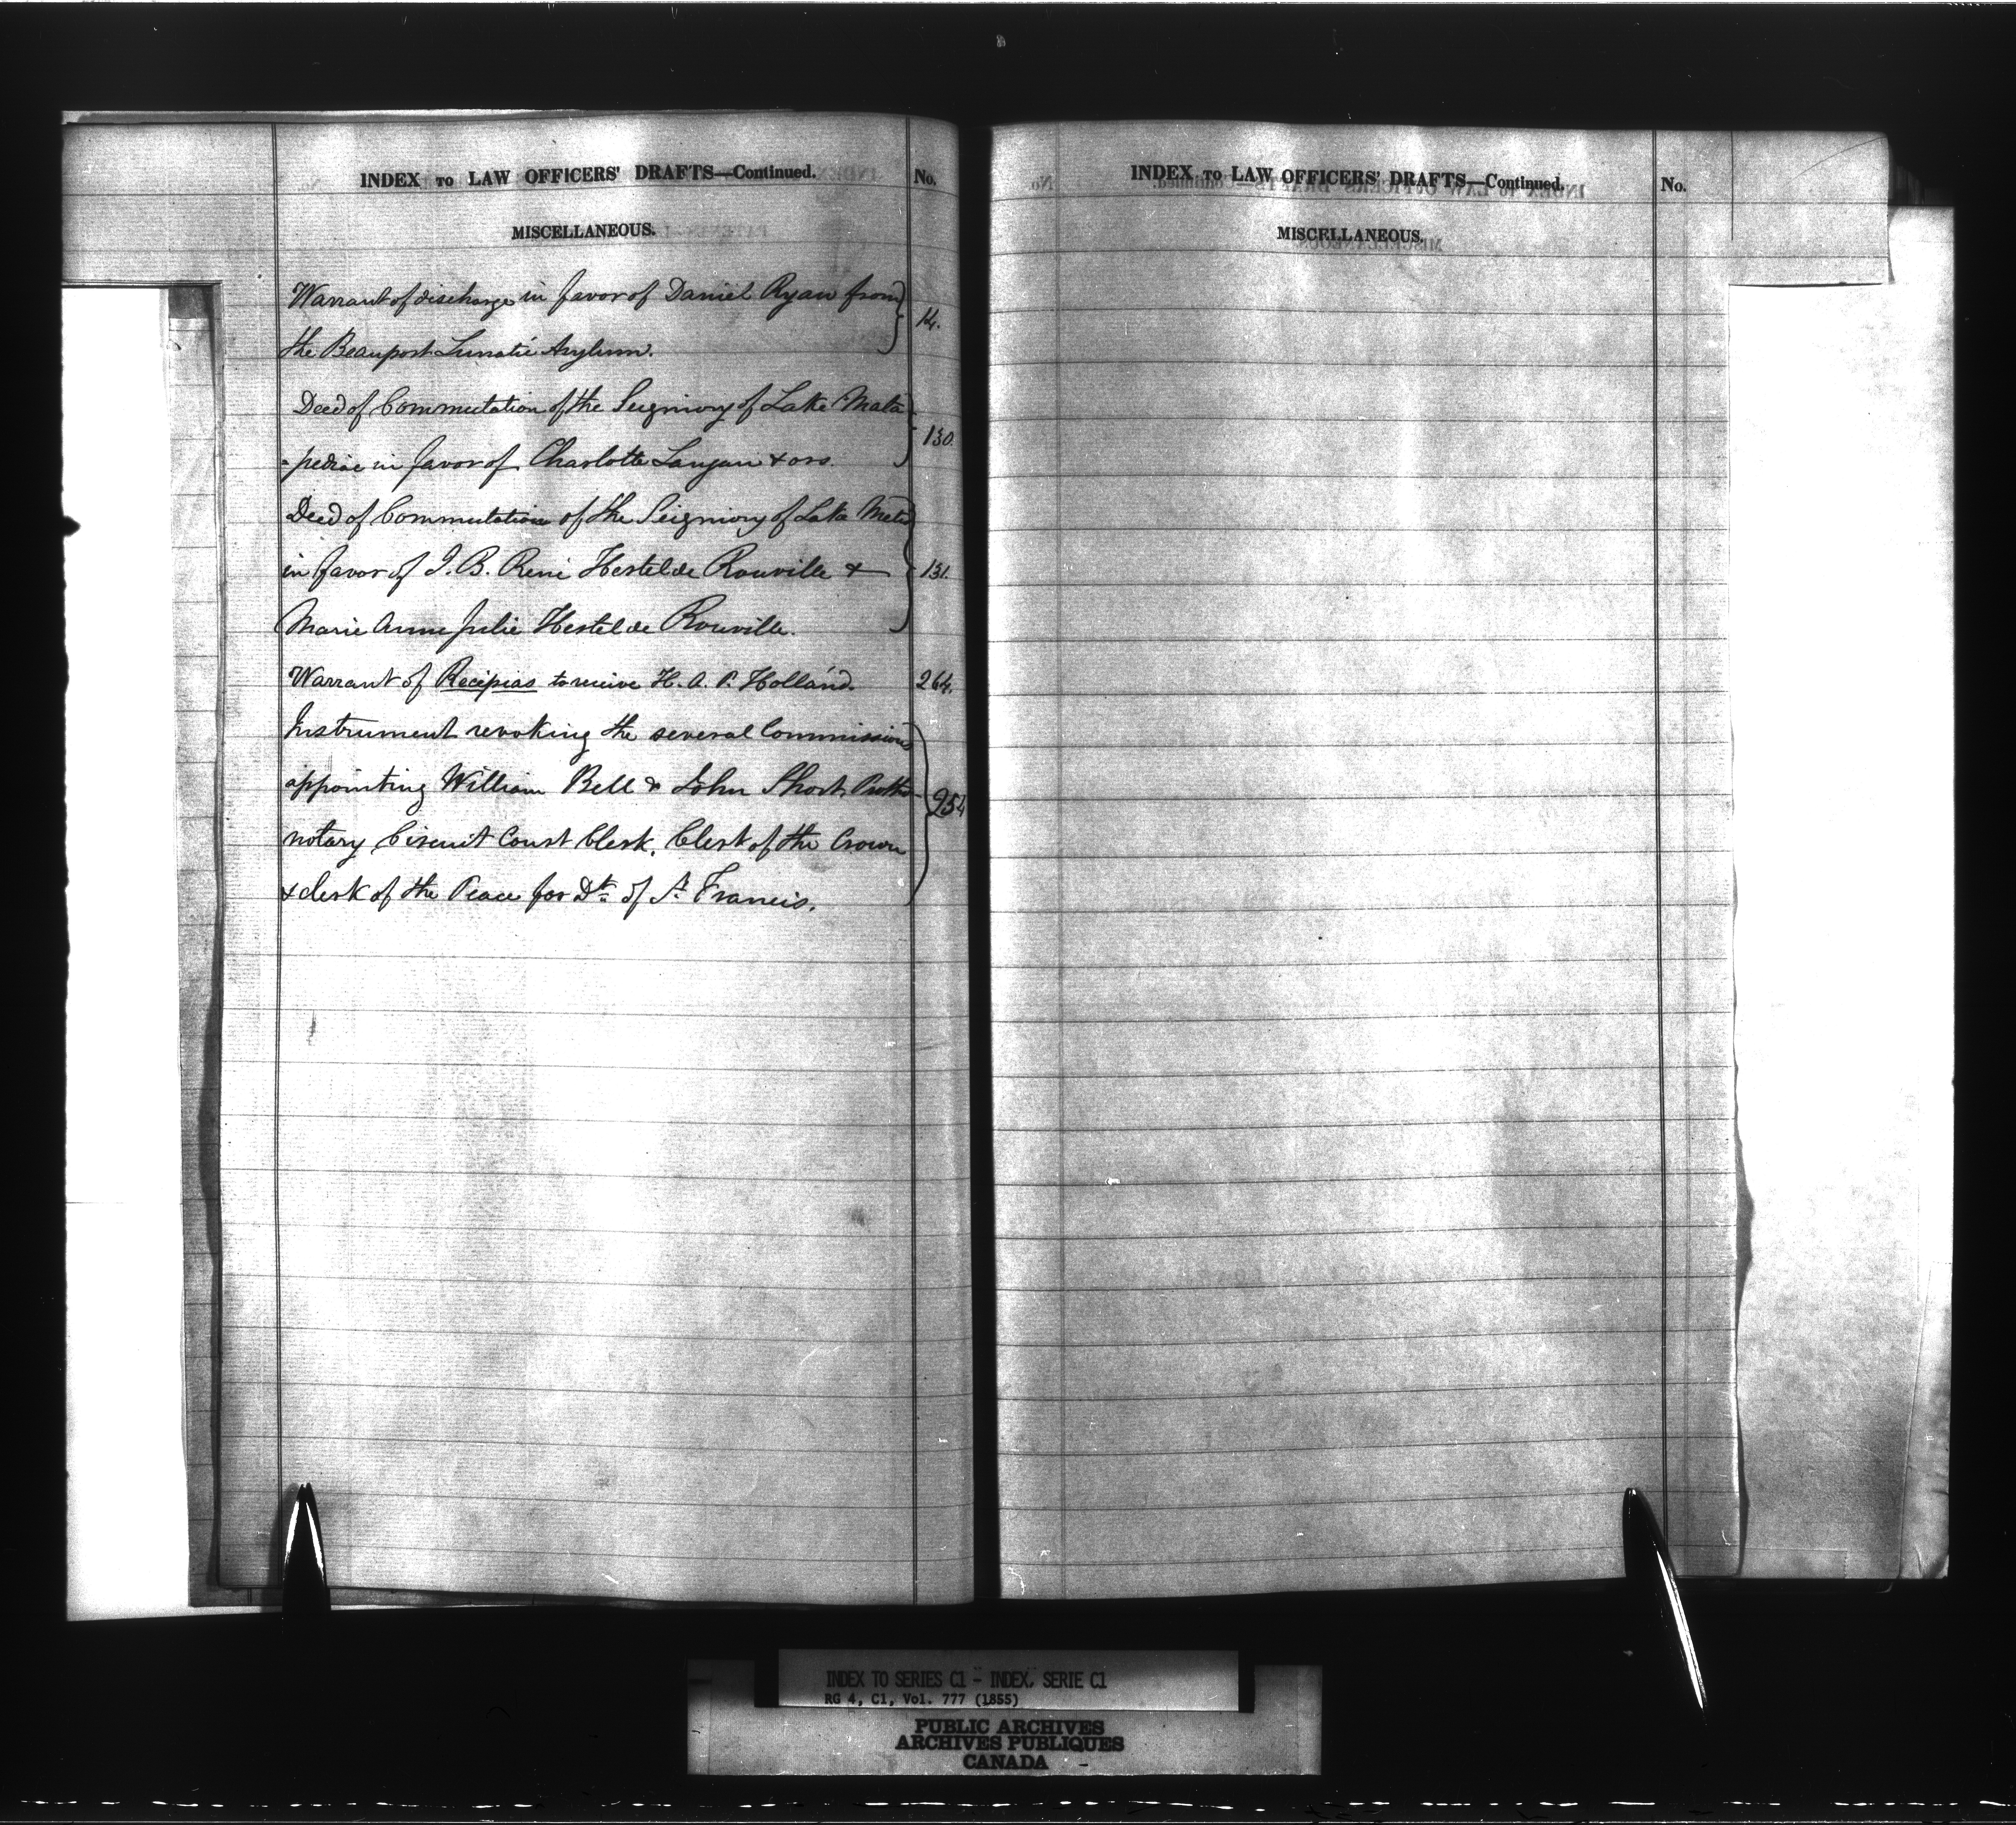 INDEX TO LAW OFFICERS' DRAFTS—Continued. No.
MISCELLANEOUS.
Warrant of discharge in favor of Daniel Ryan from
the Beauport Lunatic Asylum. 14.
Deed of Commutation of the Seigniory of Lake Mata
-pediac in favor of Charlotte Lanjan & ors. 130.
Deed of Commutation of the Seigniory of Lake Metis
in favor of J. B. Réné Hertel de Rouville & 131.
Marie Anne Julie Hertel de Rouville.
Warrant of Recipias to receive H. A. P. Holland. 264.
Instrument revoking the several Commissions
appointing William Bell & John Short Protho- 954
notary Circuit Court Clerk, Clerk of the Crown
& clerk of the Peace for Dt. of St. Francis.
INDEX TO LAW OFFICERS' DRAFTS—Continued. No.
MISCELLANEOUS.
INDEX TO SERIES C1 - INDEX, SERIE C1
RG 4, C1, Vol. 777 (1855)
PUBLIC ARCHIVES
ARCHIVES PUBLIQUES
CANADA